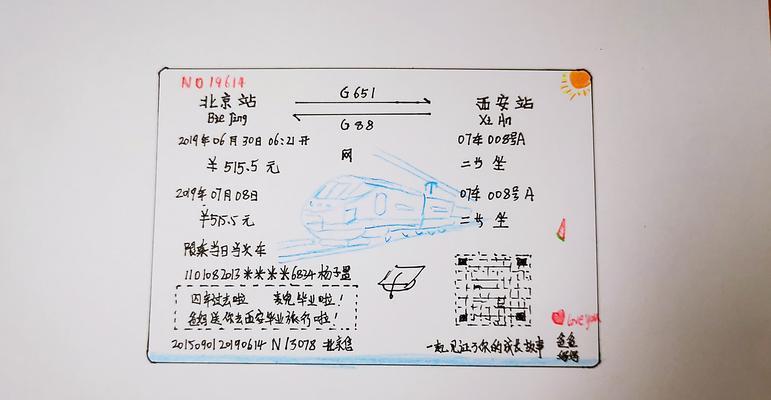 NO19614
北京站 G651 西安站
BeeJing G88 Xi An
2019年06月30日06:21开 07车008号A
网
￥515.5元 二等坐
2019年07月08日 07车008号A
￥515.5元 二等坐
限乘当日当次车
1101082013米米米米6834杨子墨
四年过去啦 毕业啦！
爸妈送你去西安毕业旅行啦！
love you
2015090120190614 N13078 北京售 一起见证了你的成长故事
爸爸
妈妈